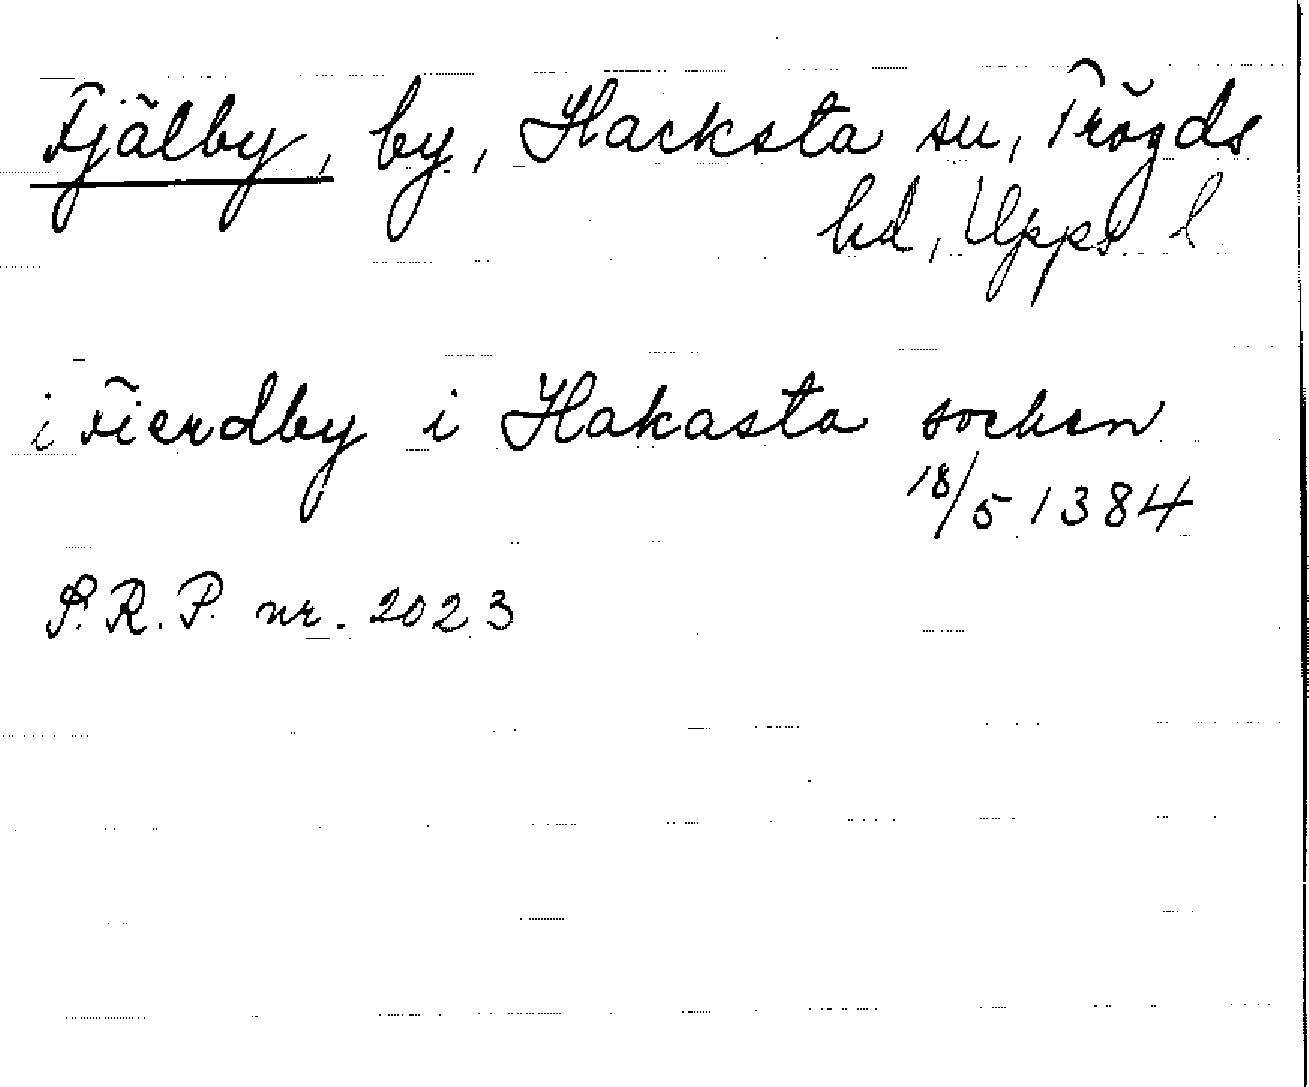 Fjälby, by, Hacksta sn, Trögds
hd, Upps. l
i Fierdby i Hakasta socken
18/5 1384
S.R.P. nr. 2023